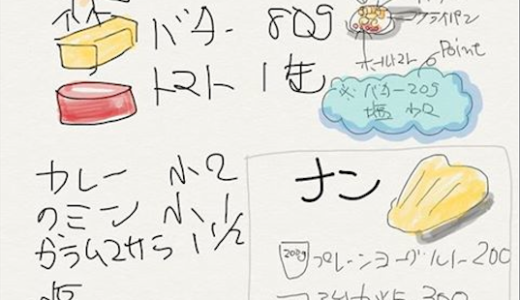 バター 80g
トマト 1缶
フライパン
ホールトマト
Point
※バター20g
塩 小2
カレー 小2
クミン 小1
ガラムマサラ 1 1/2
ナン
200g プレーンヨーグルト 200